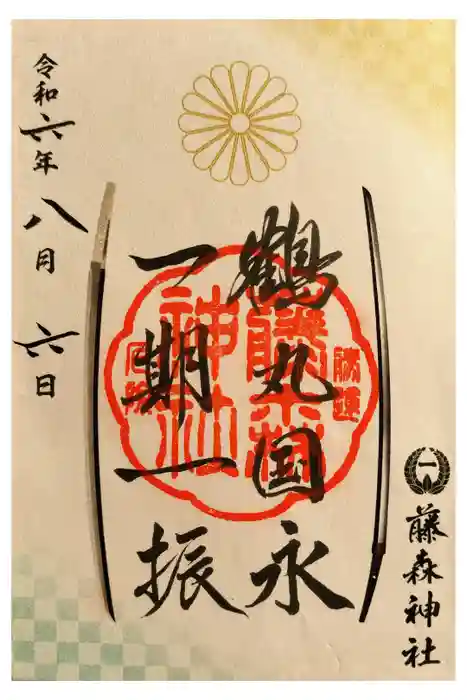 鶴丸国永
一期一振
令和六年八月六日
藤森神社
藤森神社
勝運
厄除